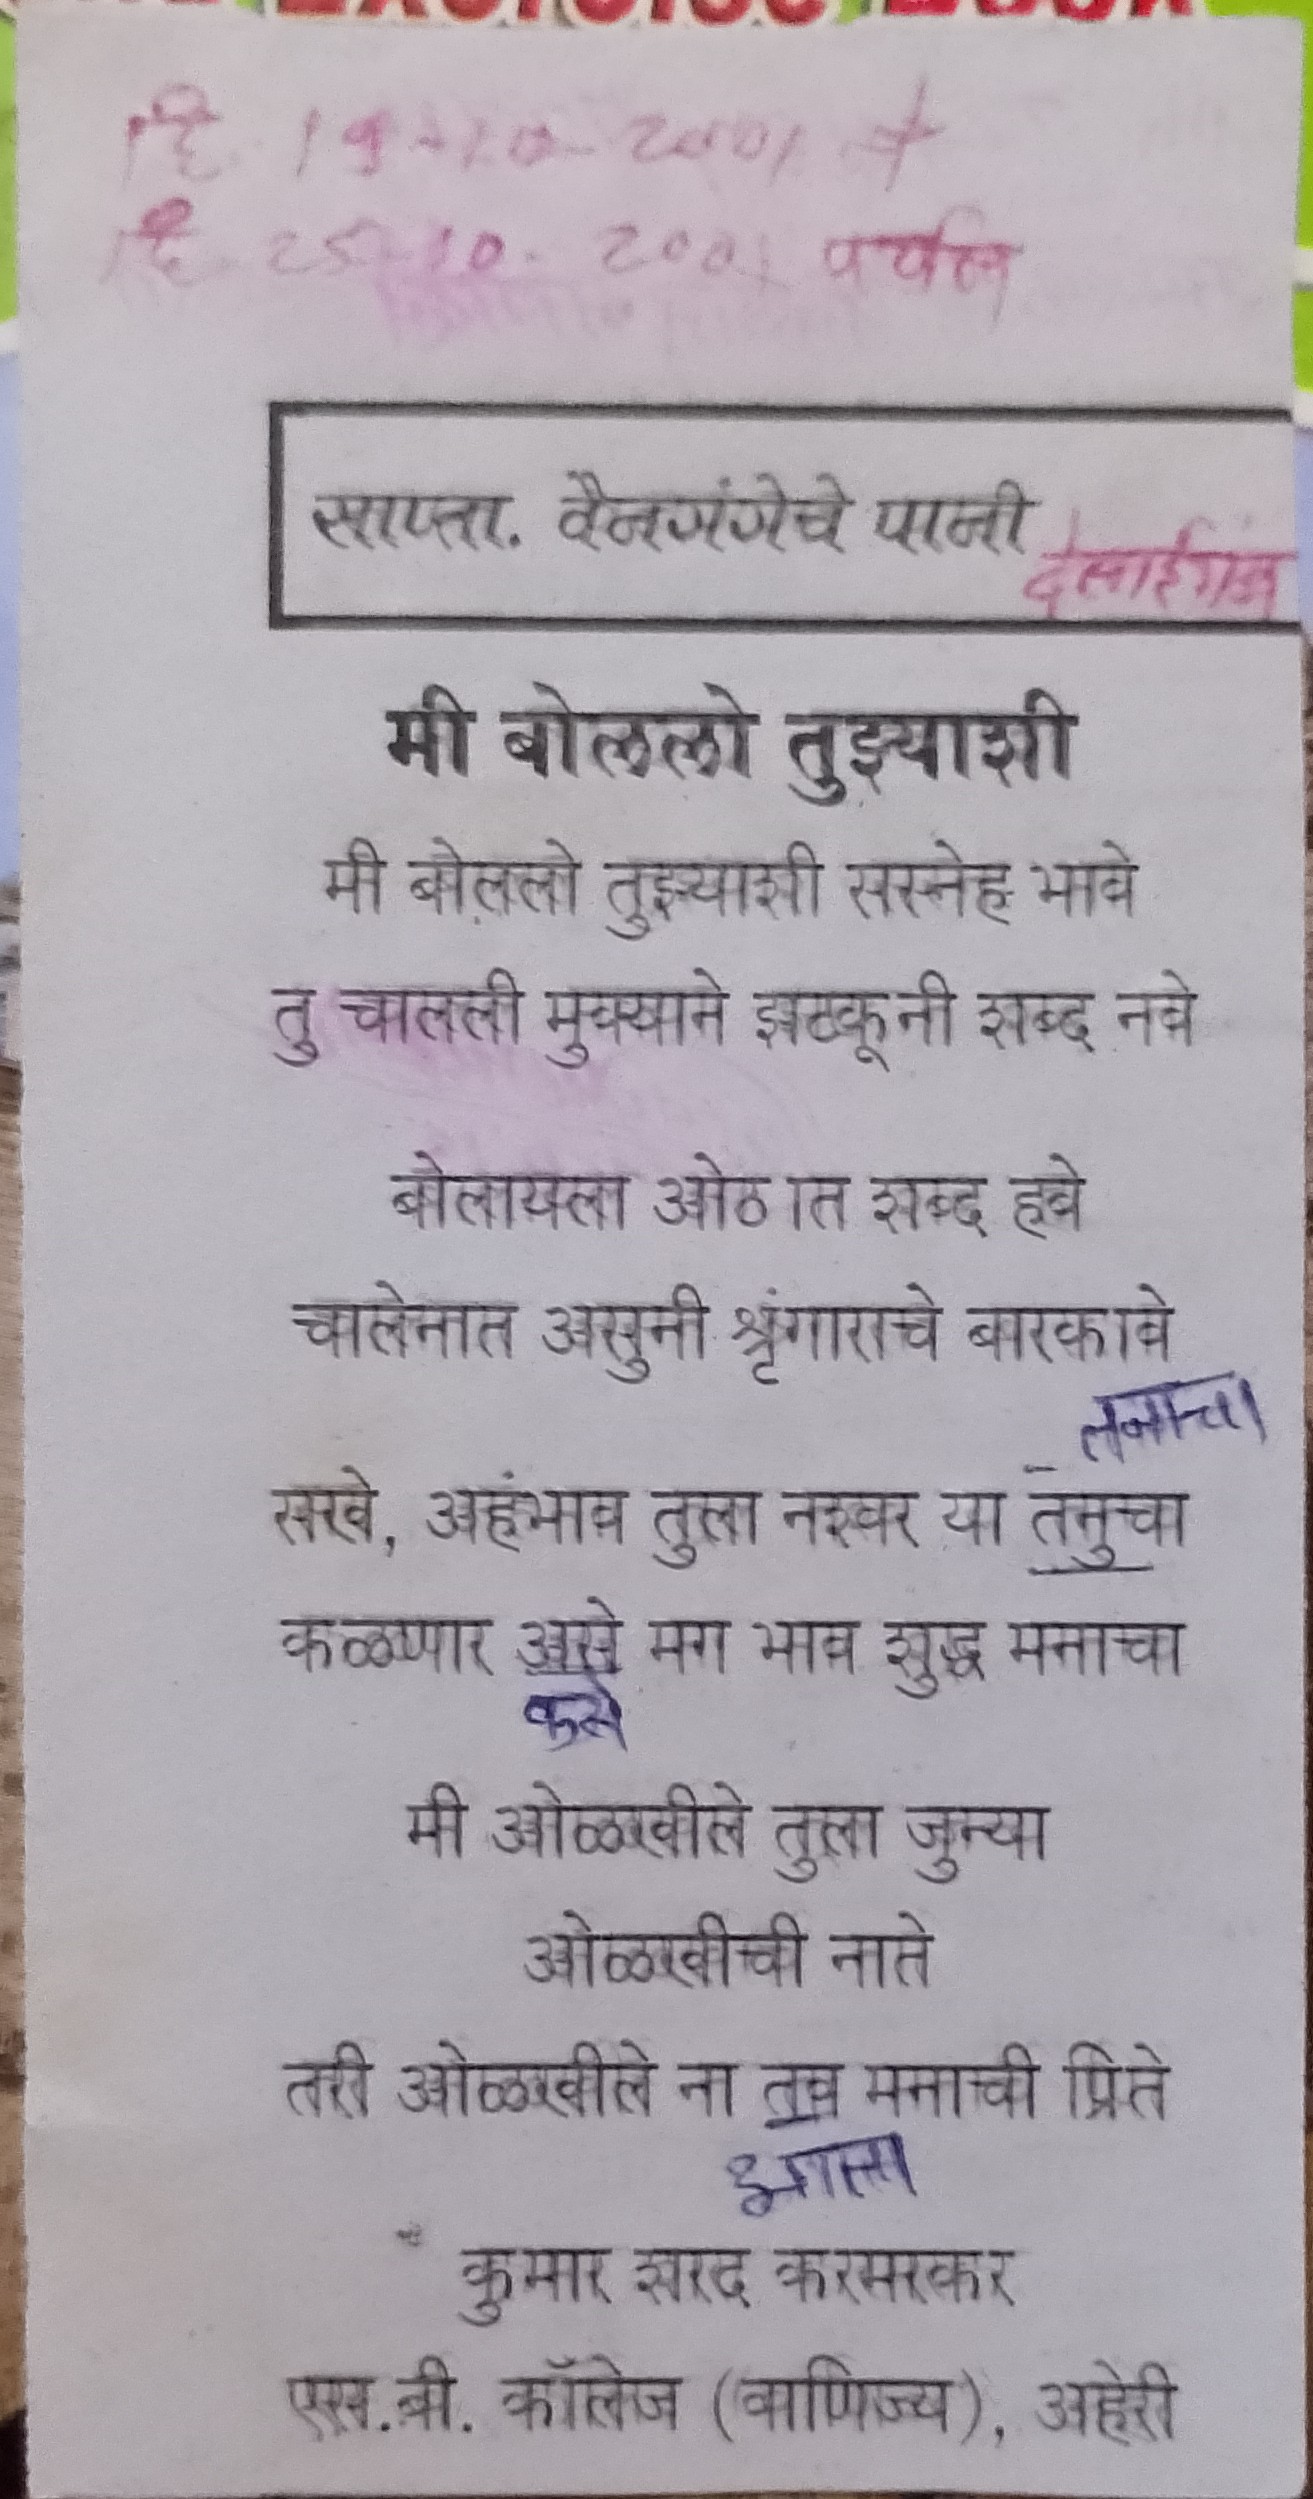 EXERCISE BOOK
दि. 19-10-2001 ते
दि. 25-10-2001 पर्यंत
साप्ता. वैनगंगेचे पानी
देसाईगंज
मी बोललो तुझ्याशी
मी बोललो तुझ्याशी सस्नेह भावे
तु चालली मुक्याने झटकूनी शब्द नवे
बोलायला ओठात शब्द हवे
चालेनात असुनी श्रृंगाराचे बारकावे
तनाचा
सखे, अहंभाव तुला नश्वर या तनुचा
कळणार असे मग भाव शुद्ध मनाचा
कसे
मी ओळखीले तुला जुन्या
ओळखीची नाते
तरी ओळखीले ना तव मनाची प्रिते
कुमार शरद करमरकर
एस.बी. कॉलेज (वाणिज्य), अहेरी